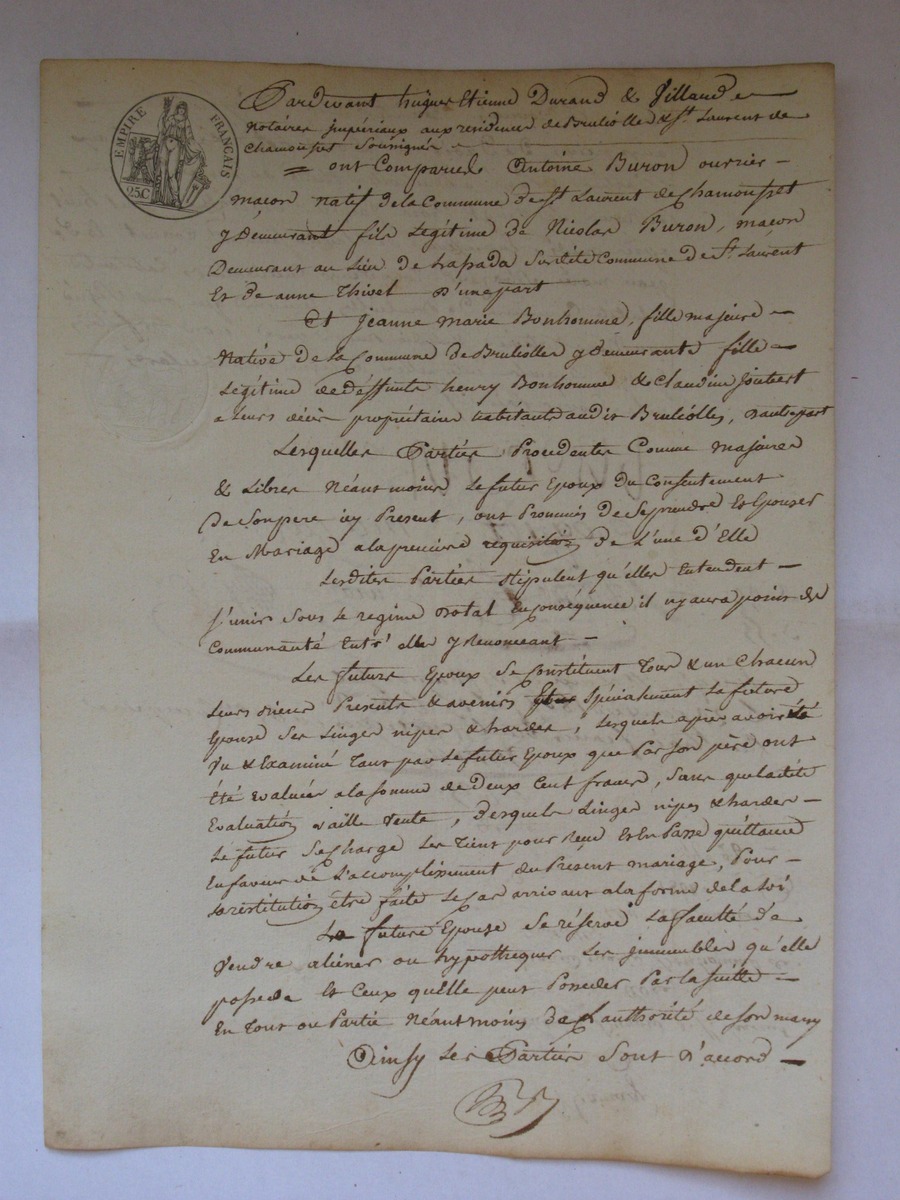 EMPIRE FRANÇAIS
25C
Pardevant hugues Etienne Durand & Villaud
Notaires Impériaux aux residence de Brullolles & St. Laurent de
Chamousset Soussignés
= ont Comparus Antoine Buron ouvrier
macon natif de la Commune de St Laurent de Chamousset
y Demeurant fils Légitime de Nicolas Buron, macon
Demeurant au Lieu de Lapada Susdite Commune de St. Laurent
Et de anne Thivel D'une part
Et jeanne marie Bonhomme, fille majeure
Native de la Commune de Brullolles y demeurante fille
Légitime de deffunts henry Bonhomme & Claudine joubert
a leurs décès propriétaires habitants audit Brullolles, dautre part
Lesquelles Parties Procedentes Comme majeures
& Libres Néantmoins Le futur Epoux du Consentement
De Son pere icy Present, ont Prommis de Se prendre Et Epouser
En Mariage a la premiere requisition de L'une d'Elle
Lesdites Parties Stipulent qu'elles Entendent
S'unir Sous Le regime Dotal En conséquence il n'y aura point de
Communauté Entr'elles y Renoncant
Les futurs Epoux Se Constituent Tous & un Chacun
Leurs biens Presents & avenirs Spécialement La future
Epouse Ses Linges nipes & hardes, Lesquels après avoir été
Vu & Examiné Tant par Le futur Epoux que Par Son père ont
Été Evalués a la Somme de Deux Cent francs, Sans que ladite
Evaluation vaille Vente, desquels Linges nipes & hardes
Le futur Se Charge Les Tient pour Recu Et En Passe quittance
En faveur de L'accomplissement du Présent mariage, Pour
La restitution être faite Le Cas arrivant a la forme de la Loi
La future Epouse Se réserve La faculté de
Vendre aliéner ou hypothequer Les immeubles qu'elle
possede Et Ceux qu'elle peut Posseder Par la Suitte
En Tout ou Partie Néantmoins de L'authorité de Son mary
Ainsy Les Parties Sont D'accord